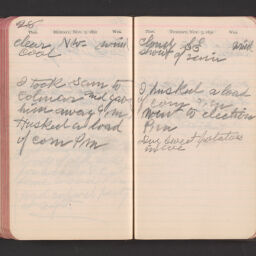 25
Ther. Monday, Nov. 2, 1891 Wea.
Clear NW wind
Cool
I took Sam to
him away P.m
Husked a load
of corn P.m
Ther. Tuesday, Nov. 3, 1891 Wea.
Cloudy SE wind
of rain
I husked a load
of corn
went to election
P.m
Dug sweet potatoes